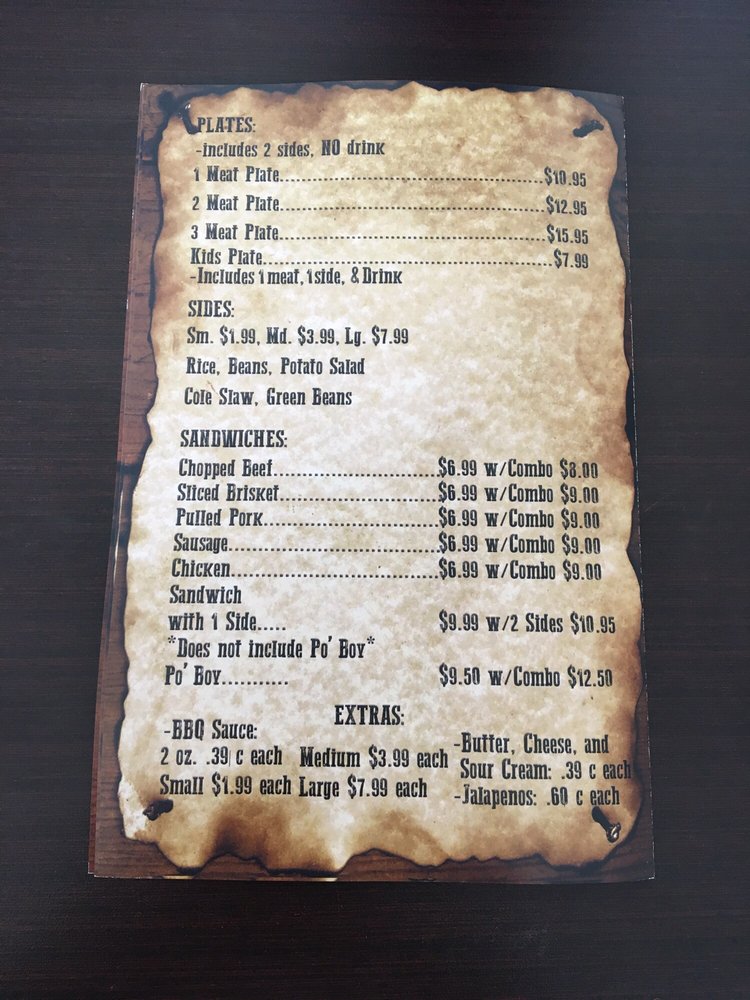 PLATES:
-includes 2 sides, NO drink
1 Meat Plate..............................................$10.95
2 Meat Plate..............................................$12.95
3 Meat Plate..............................................$15.95
Kids Plate..................................................$7.99
-Includes 1 meat, 1 side, & Drink
SIDES:
Sm. $1.99, Md. $3.99, Lg. $7.99
Rice, Beans, Potato Salad
Cole Slaw, Green Beans
SANDWICHES:
Chopped Beef............................$6.99 w/Combo $8.00
Sliced Brisket...........................$6.99 w/Combo $9.00
Pulled Pork..............................$6.99 w/Combo $9.00
Sausage....................................$6.99 w/Combo $9.00
Chicken....................................$6.99 w/Combo $9.00
Sandwich
with 1 Side..... $9.99 w/2 Sides $10.95
*Does not include Po' Boy*
Po' Boy........... $9.50 w/Combo $12.50
EXTRAS:
-BBQ Sauce:
2 oz. .39 c each Medium $3.99 each
Small $1.99 each Large $7.99 each
-Butter, Cheese, and
Sour Cream: .39 c each
-Jalapenos: .60 c each